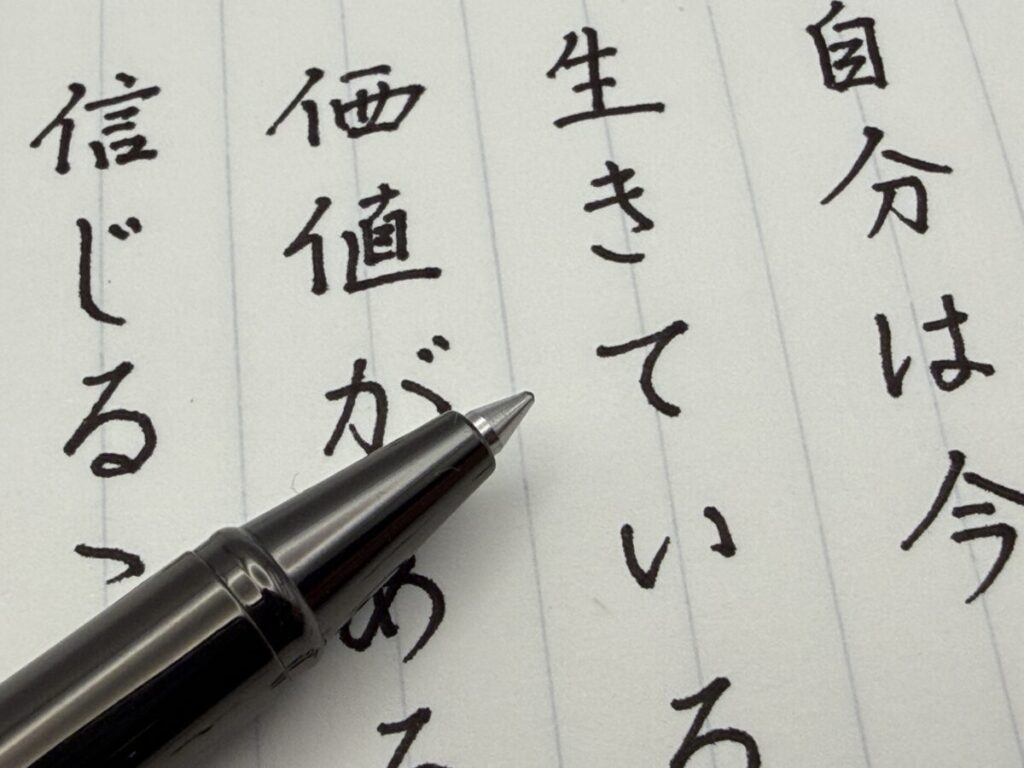 自分は今
生きている
価値がある
信じる